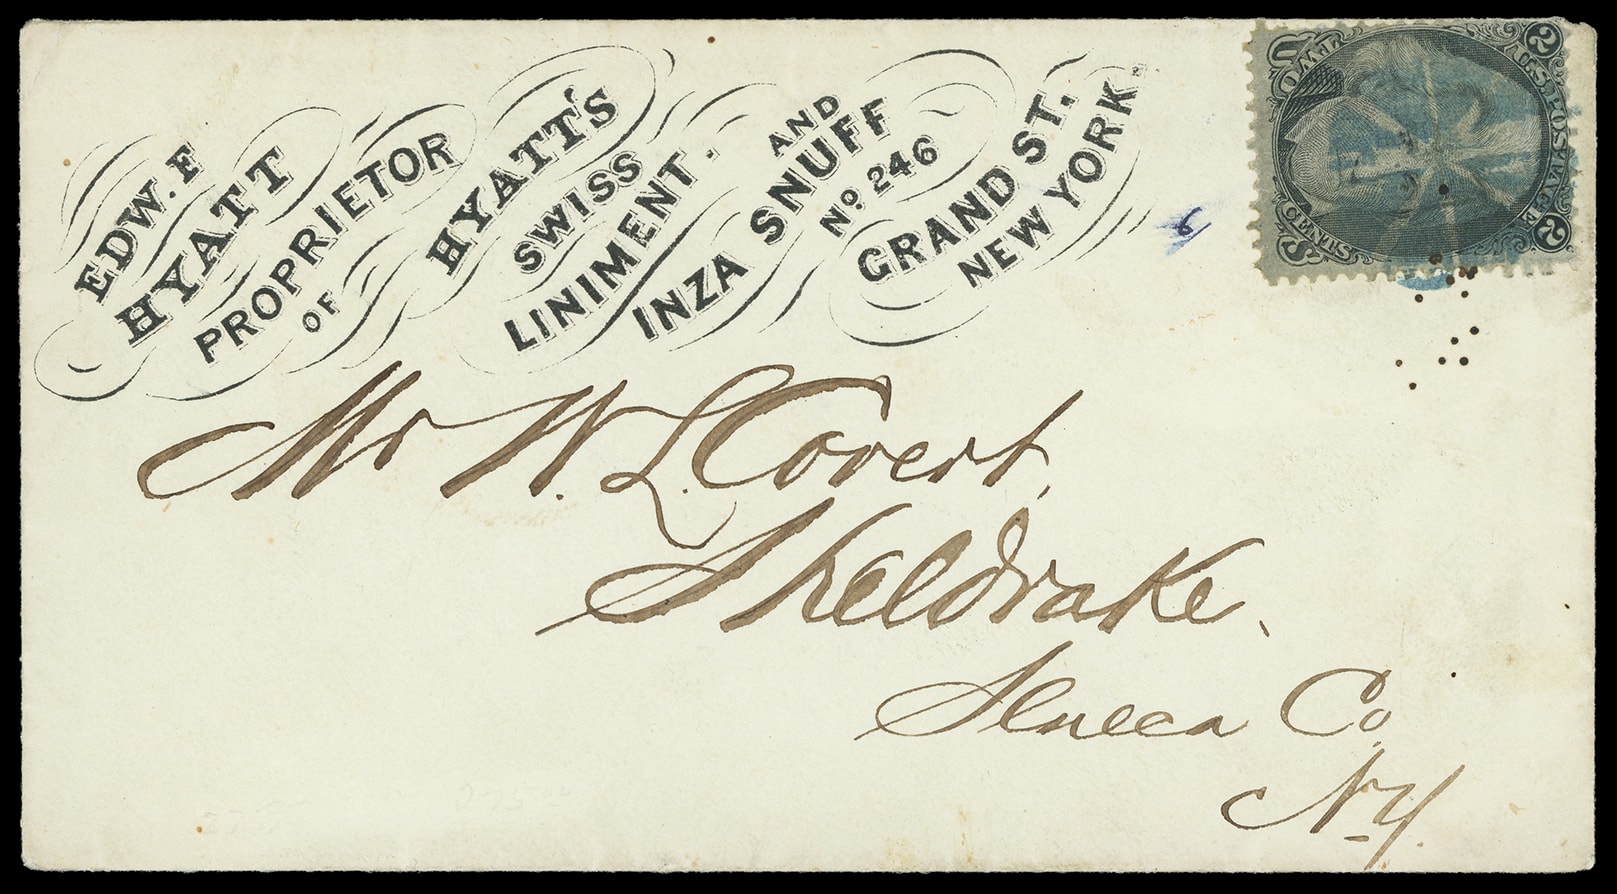 EDW. F
HYATT
PROPRIETOR
OF
HYATT'S
SWISS
LINIMENT.
AND
INZA SNUFF
No. 246
GRAND ST.
NEW YORK.
U.S. POSTAGE
2 2
TWO CENTS
U S
6
Mr W. L. Covert,
Sheldrake,
Seneca Co.
N-Y.